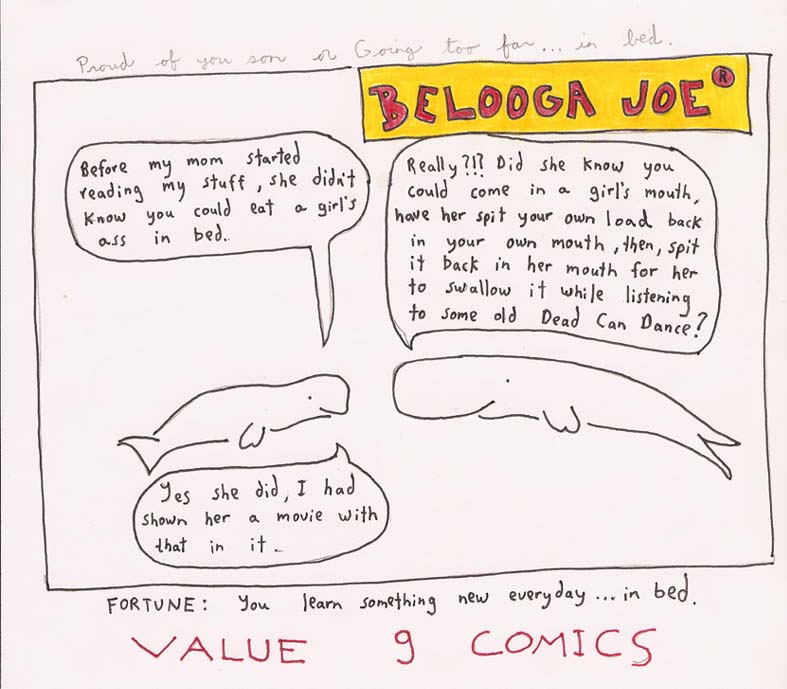 Proud of you son or Going too far... in bed.
BELOOGA JOE®
Before my mom started
reading my stuff, she didn't
know you could eat a girl's
ass in bed..
Really?!? Did she know you
could come in a girl's mouth,
have her spit your own load back
in your own mouth, then, spit
it back in her mouth for her
to swallow it while listening
to some old Dead Can Dance?
Yes she did, I had
shown her a movie with
that in it..
FORTUNE: You learn something new everyday... in bed.
VALUE 9 COMICS